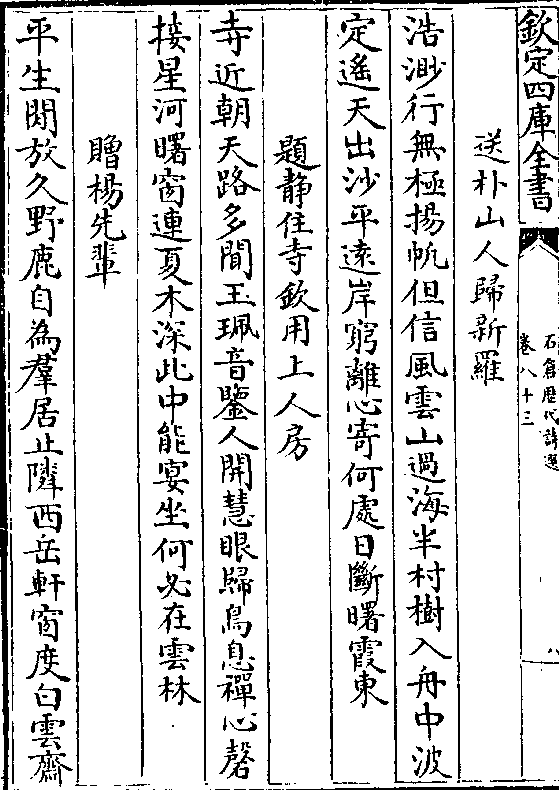 欽定四庫全書
石倉歴代詩選
卷八十三
八
送朴山人歸新羅
浩渺行無極揚帆但信風雲山過海半村樹入舟中波
定遙天出沙平遠岸窮離心寄何處目斷曙霞東
題静住寺欽用上人房
寺近朝天路多聞玉珮音鑒人開慧眼歸鳥息禪心磬
接星河曙窗連夏木深此中能宴坐何必在雲林
贈楊先輩
平生閑放久野鹿自為羣居止隣西岳軒窗度白雲齋